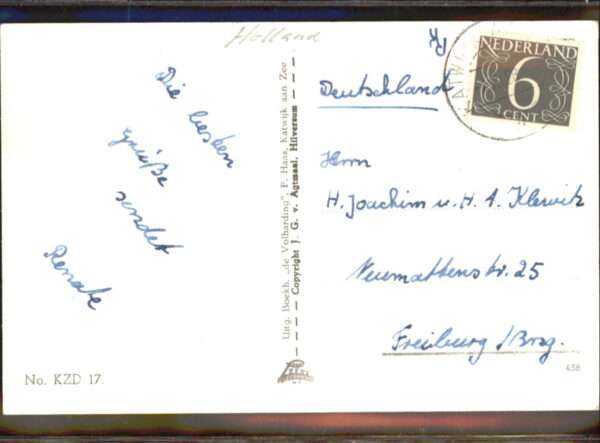 Holland
Die besten
grüße
sendet
Renate
No. KZD 17.
Uitg. Boekh. „de Volharding", F. Hans, Katwijk aan Zee
Copyright J. G. v. Agtmaal, Hilversum
NEDERLAND
6
CENT
KATWI
Deutschland
Herrn
H. Joachim u. H. A. Klewitz
Neumattenstr. 25
Freiburg / Brsg.
438